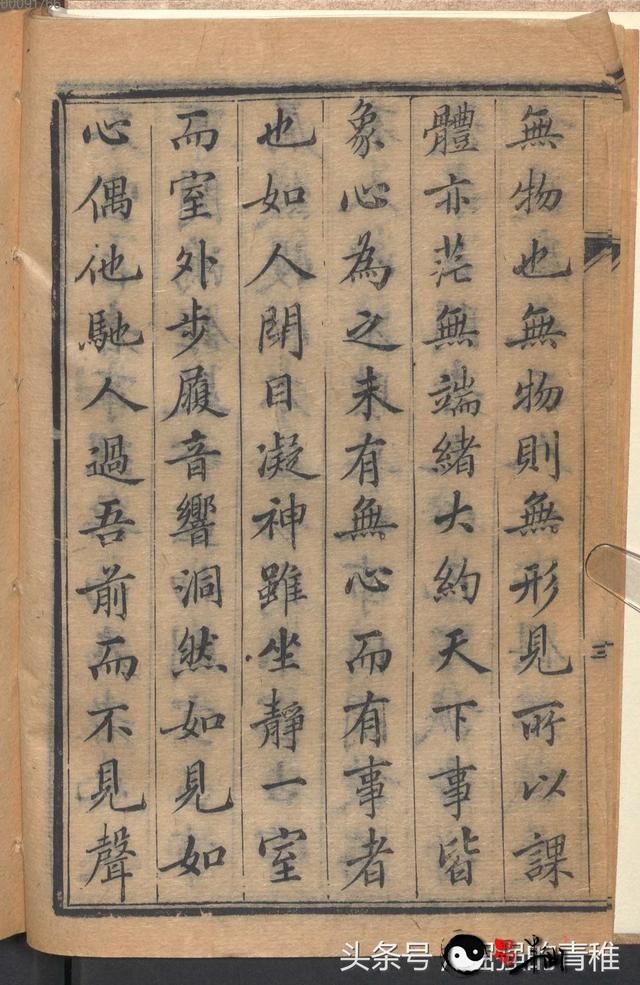 無物也無物則無形見所以課
體亦茫無端緒大約天下事皆
象心為之未有無心而有事者
也如人閉目凝神雖坐靜一室
而室外步履音響洞然如見如
心偶他馳人過吾前而不見聲
三
頭条号
的青稚